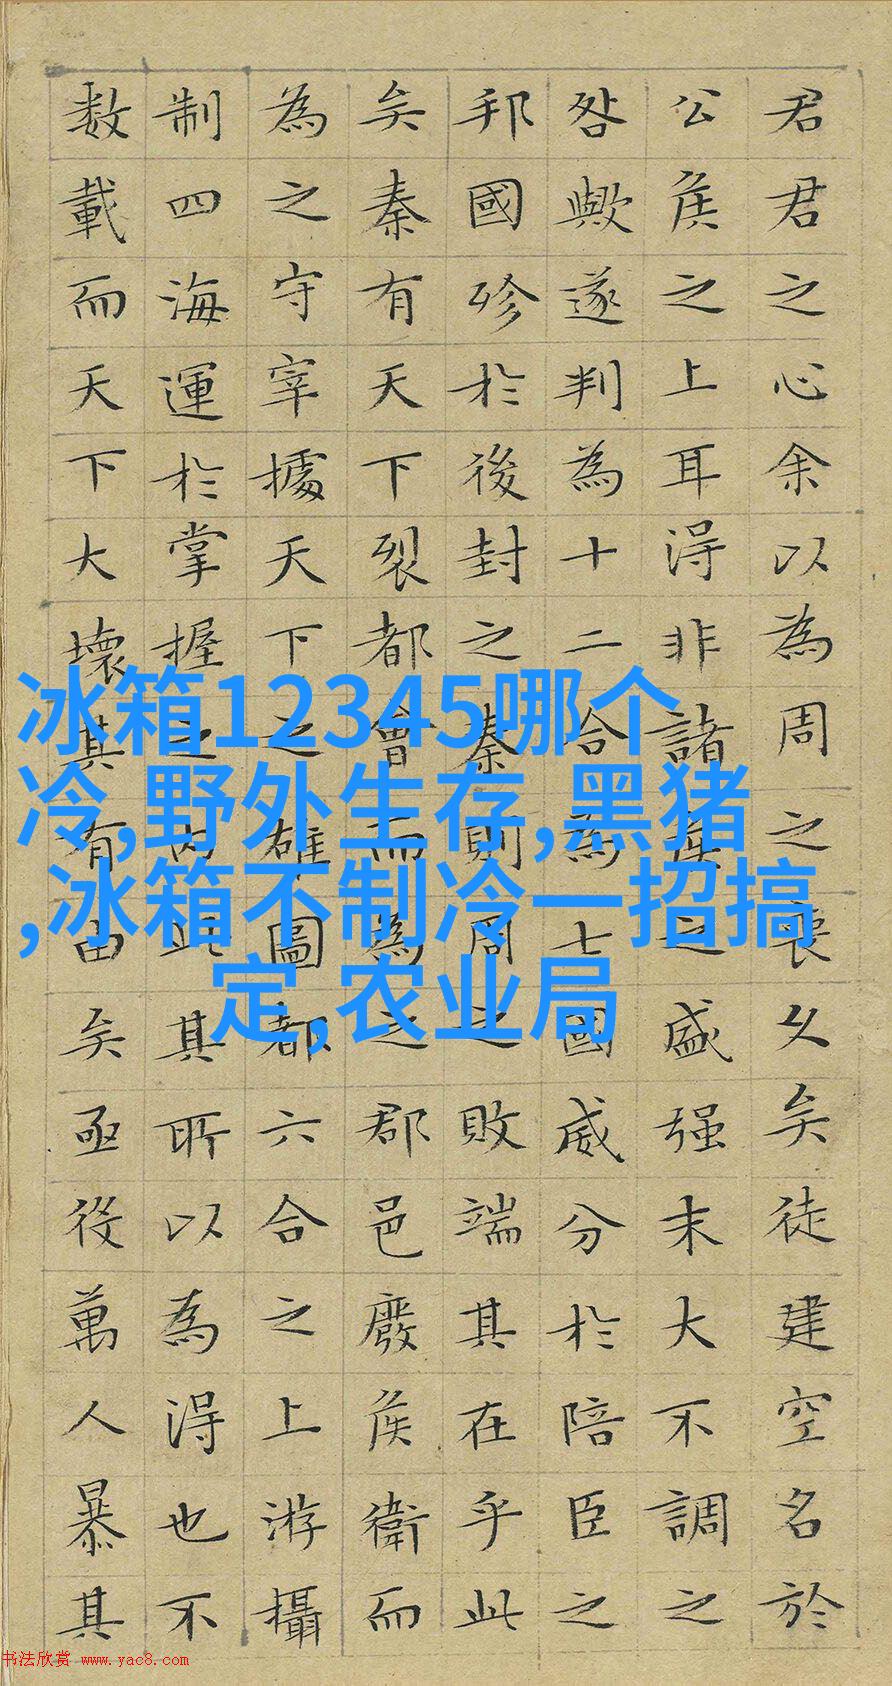 君君之心余以為周之喪久矣徒建空名於
公侯之上耳得非諸侯之盛强末大不調之
咎歟遂判為十二合為七國威分於陪臣之
邦國殄於後封之秦則周之敗端其在乎此
矣秦有天下裂都會而為之郡邑廢侯衛而
為之守宰據天下之雄圖都六合之上游攝
制四海運於掌握之内此其所以為得也不
数載而天下大壞其有由矣亟役萬人暴其
冰箱12345哪个
冷,野外生存,黑猪
,冰箱不制冷一招搞
定,农业局
书法欣赏 www.yac8.com